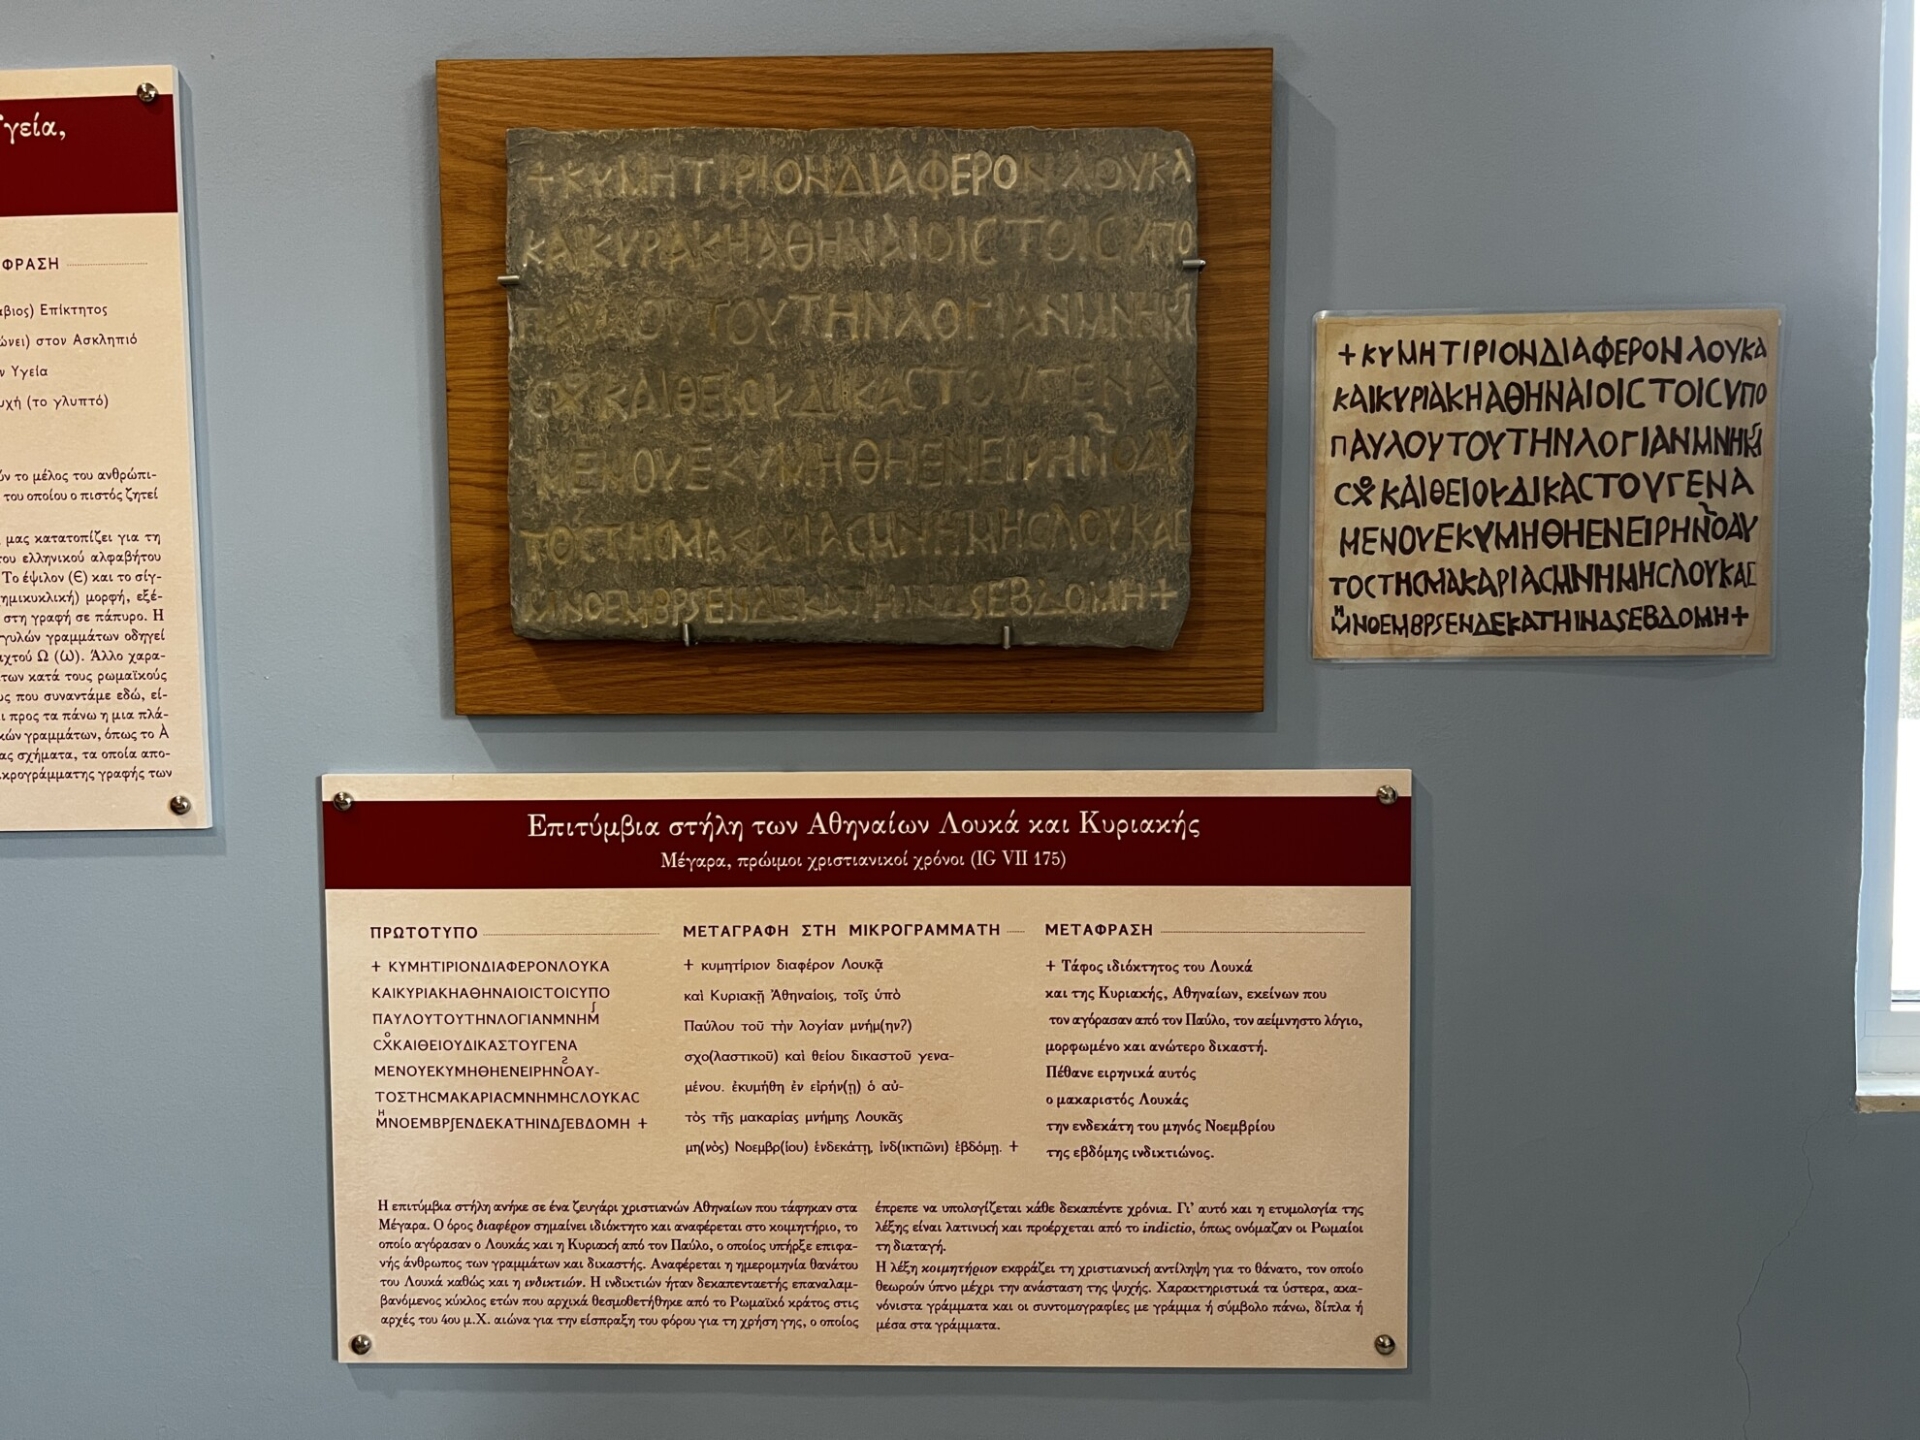 Υγεία,
ΦΡΑΣΗ
άβιος) Επίκτητος
ώνει) στον Ασκληπιό
ν Υγεία
υχή (το γλυπτό)
ύν το μέλος του ανθρώπι-
του οποίου ο πιστός ζητεί
μας κατατοπίζει για τη
του ελληνικού αλφαβήτου
Το έψιλον (Є) και το σίγ-
ημικυκλική) μορφή, εξέ-
στη γραφή σε πάπυρο. Η
γγυλών γραμμάτων οδηγεί
ιχτού Ω (Ѡ). Άλλο χαρα-
των κατά τους ρωμαϊκούς
υς που συναντάμε εδώ, εί-
ι προς τα πάνω η μια πλά-
κών γραμμάτων, όπως το Α
ας σχήματα, τα οποία απο-
κρογράμματης γραφής των
+ΚΥΜΗΤΙΡΙΟΝΔΙΑΦΕΡΟΝΛΟΥΚΑ
ΚΑΙΚΥΡΑΚΗΑΘΗΝΑΙΟΙϹΤΟΙϹΥΠΟ
ΠΑΥΛΟΥΤΟΥΤΗΝΛΟΓΙΑΝΜΝΗΜ
ϹΧΟΚΑΙΘΕΙΟΥΔΙΚΑϹΤΟΥΓΕΝΑ
ΜΕΝΟΥΕΚΥΜΗΘΗΕΝΕΙΡΗΝΟΑΥ
ΤΟϹΤΗϹΜΑΚΑΡΙΑϹΜΝΗΜΗϹΛΟΥΚΑϹ
ΜΝΟΕΜΒΡSΕΝΔΕΚΑΤΗΙΝΔSΕΒΔΟΜΗ+
+ΚΥΜΗΤΙΡΙΟΝΔΙΑΦΕΡΟΝΛΟΥΚΑ
ΚΑΙΚΥΡΙΑΚΗΑΘΗΝΑΙΟΙϹΤΟΙϹΥΠΟ
ΠΑΥΛΟΥΤΟΥΤΗΝΛΟΓΙΑΝΜΝΗΜ
ϹΧΟΚΑΙΘΕΙΟΥΔΙΚΑϹΤΟΥΓΕΝΑ
ΜΕΝΟΥΕΚΥΜΗΘΗΕΝΕΙΡΗΝΟΑΥ
ΤΟϹΤΗϹΜΑΚΑΡΙΑϹΜΝΗΜΗϹΛΟΥΚΑϹ
ΜΗΝΟΕΜΒΡSΕΝΔΕΚΑΤΗΙΝΔSΕΒΔΟΜΗ+
Επιτύμβια στήλη των Αθηναίων Λουκά και Κυριακής
Μέγαρα, πρώιμοι χριστιανικοί χρόνοι (IG VII 175)
ΠΡΩΤΟΤΥΠΟ
+ ΚΥΜΗΤΙΡΙΟΝΔΙΑΦΕΡΟΝΛΟΥΚΑ
ΚΑΙΚΥΡΙΑΚΗΑΘΗΝΑΙΟΙϹΤΟΙϹΥΠΟ
ΠΑΥΛΟΥΤΟΥΤΗΝΛΟΓΙΑΝΜΝΗΜʃ
ϹΧΟΚΑΙΘΕΙΟΥΔΙΚΑΣΤΟΥΓΕΝΑ
ΜΕΝΟΥΕΚΥΜΗΘΗΕΝΕΙΡΗΝΟΑΥ-
ΤΟΣΤΗϹΜΑΚΑΡΙΑϹΜΝΗΜΗϹΛΟΥΚΑϹ
ΜΗΝΟΕΜΒΡʃΕΝΔΕΚΑΤΗΙΝΔʃΕΒΔΟΜΗ +
ΜΕΤΑΓΡΑΦΗ ΣΤΗ ΜΙΚΡΟΓΡΑΜΜΑΤΗ
+ κυμητίριον διαφέρον Λουκᾷ
καὶ Κυριακῇ Ἀθηναίοις, τοῖς ὑπὸ
Παύλου τοῦ τὴν λογίαν μνήμ(ην?)
σχο(λαστικοῦ) καὶ θείου δικαστοῦ γενα-
μένου. ἐκυμήθη ἐν εἰρήν(ῃ) ὁ αὐ-
τὸς τῆς μακαρίας μνήμης Λουκᾶς
μη(νὸς) Νοεμβρ(ίου) ἑνδεκάτῃ, ἰνδ(ικτιῶνι) ἑβδόμῃ. +
ΜΕΤΑΦΡΑΣΗ
+ Τάφος ιδιόκτητος του Λουκά
και της Κυριακής, Αθηναίων, εκείνων που
τον αγόρασαν από τον Παύλο, τον αείμνηστο λόγιο,
μορφωμένο και ανώτερο δικαστή.
Πέθανε ειρηνικά αυτός
ο μακαριστός Λουκάς
την ενδεκάτη του μηνός Νοεμβρίου
της εβδόμης ινδικτιώνος.
Η επιτύμβια στήλη ανήκε σε ένα ζευγάρι χριστιανών Αθηναίων που τάφηκαν στα
Μέγαρα. Ο όρος διαφέρον σημαίνει ιδιόκτητο και αναφέρεται στο κοιμητήριο, το
οποίο αγόρασαν ο Λουκάς και η Κυριακή από τον Παύλο, ο οποίος υπήρξε επιφα-
νής άνθρωπος των γραμμάτων και δικαστής. Αναφέρεται η ημερομηνία θανάτου
του Λουκά καθώς και η ινδικτιών. Η ινδικτιών ήταν δεκαπενταετής επαναλαμ-
βανόμενος κύκλος ετών που αρχικά θεσμοθετήθηκε από το Ρωμαϊκό κράτος στις
αρχές του 4ου μ.Χ. αιώνα για την είσπραξη του φόρου για τη χρήση γης, ο οποίος
έπρεπε να υπολογίζεται κάθε δεκαπέντε χρόνια. Γι' αυτό και η ετυμολογία της
λέξης είναι λατινική και προέρχεται από το indictio, όπως ονόμαζαν οι Ρωμαίοι
τη διαταγή.
Η λέξη κοιμητήριον εκφράζει τη χριστιανική αντίληψη για το θάνατο, τον οποίο
θεωρούν ύπνο μέχρι την ανάσταση της ψυχής. Χαρακτηριστικά τα ύστερα, ακα-
νόνιστα γράμματα και οι συντομογραφίες με γράμμα ή σύμβολο πάνω, δίπλα ή
μέσα στα γράμματα.